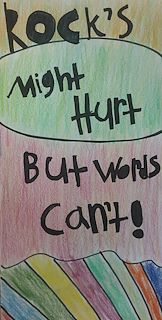 ROCK's
Might
Hurt
But words
can't!